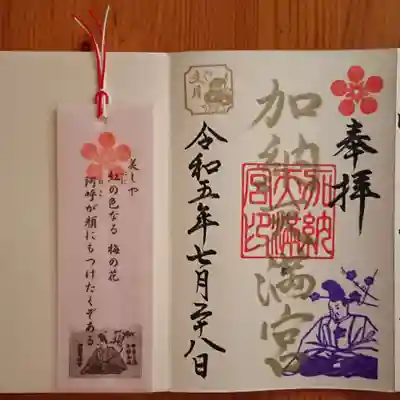 奉拝
加納天満宮
加納天満宮印
令和五年七月二十八日
文月
美しや
紅の色なる 梅の花
阿呼が顔にもつけたくぞある